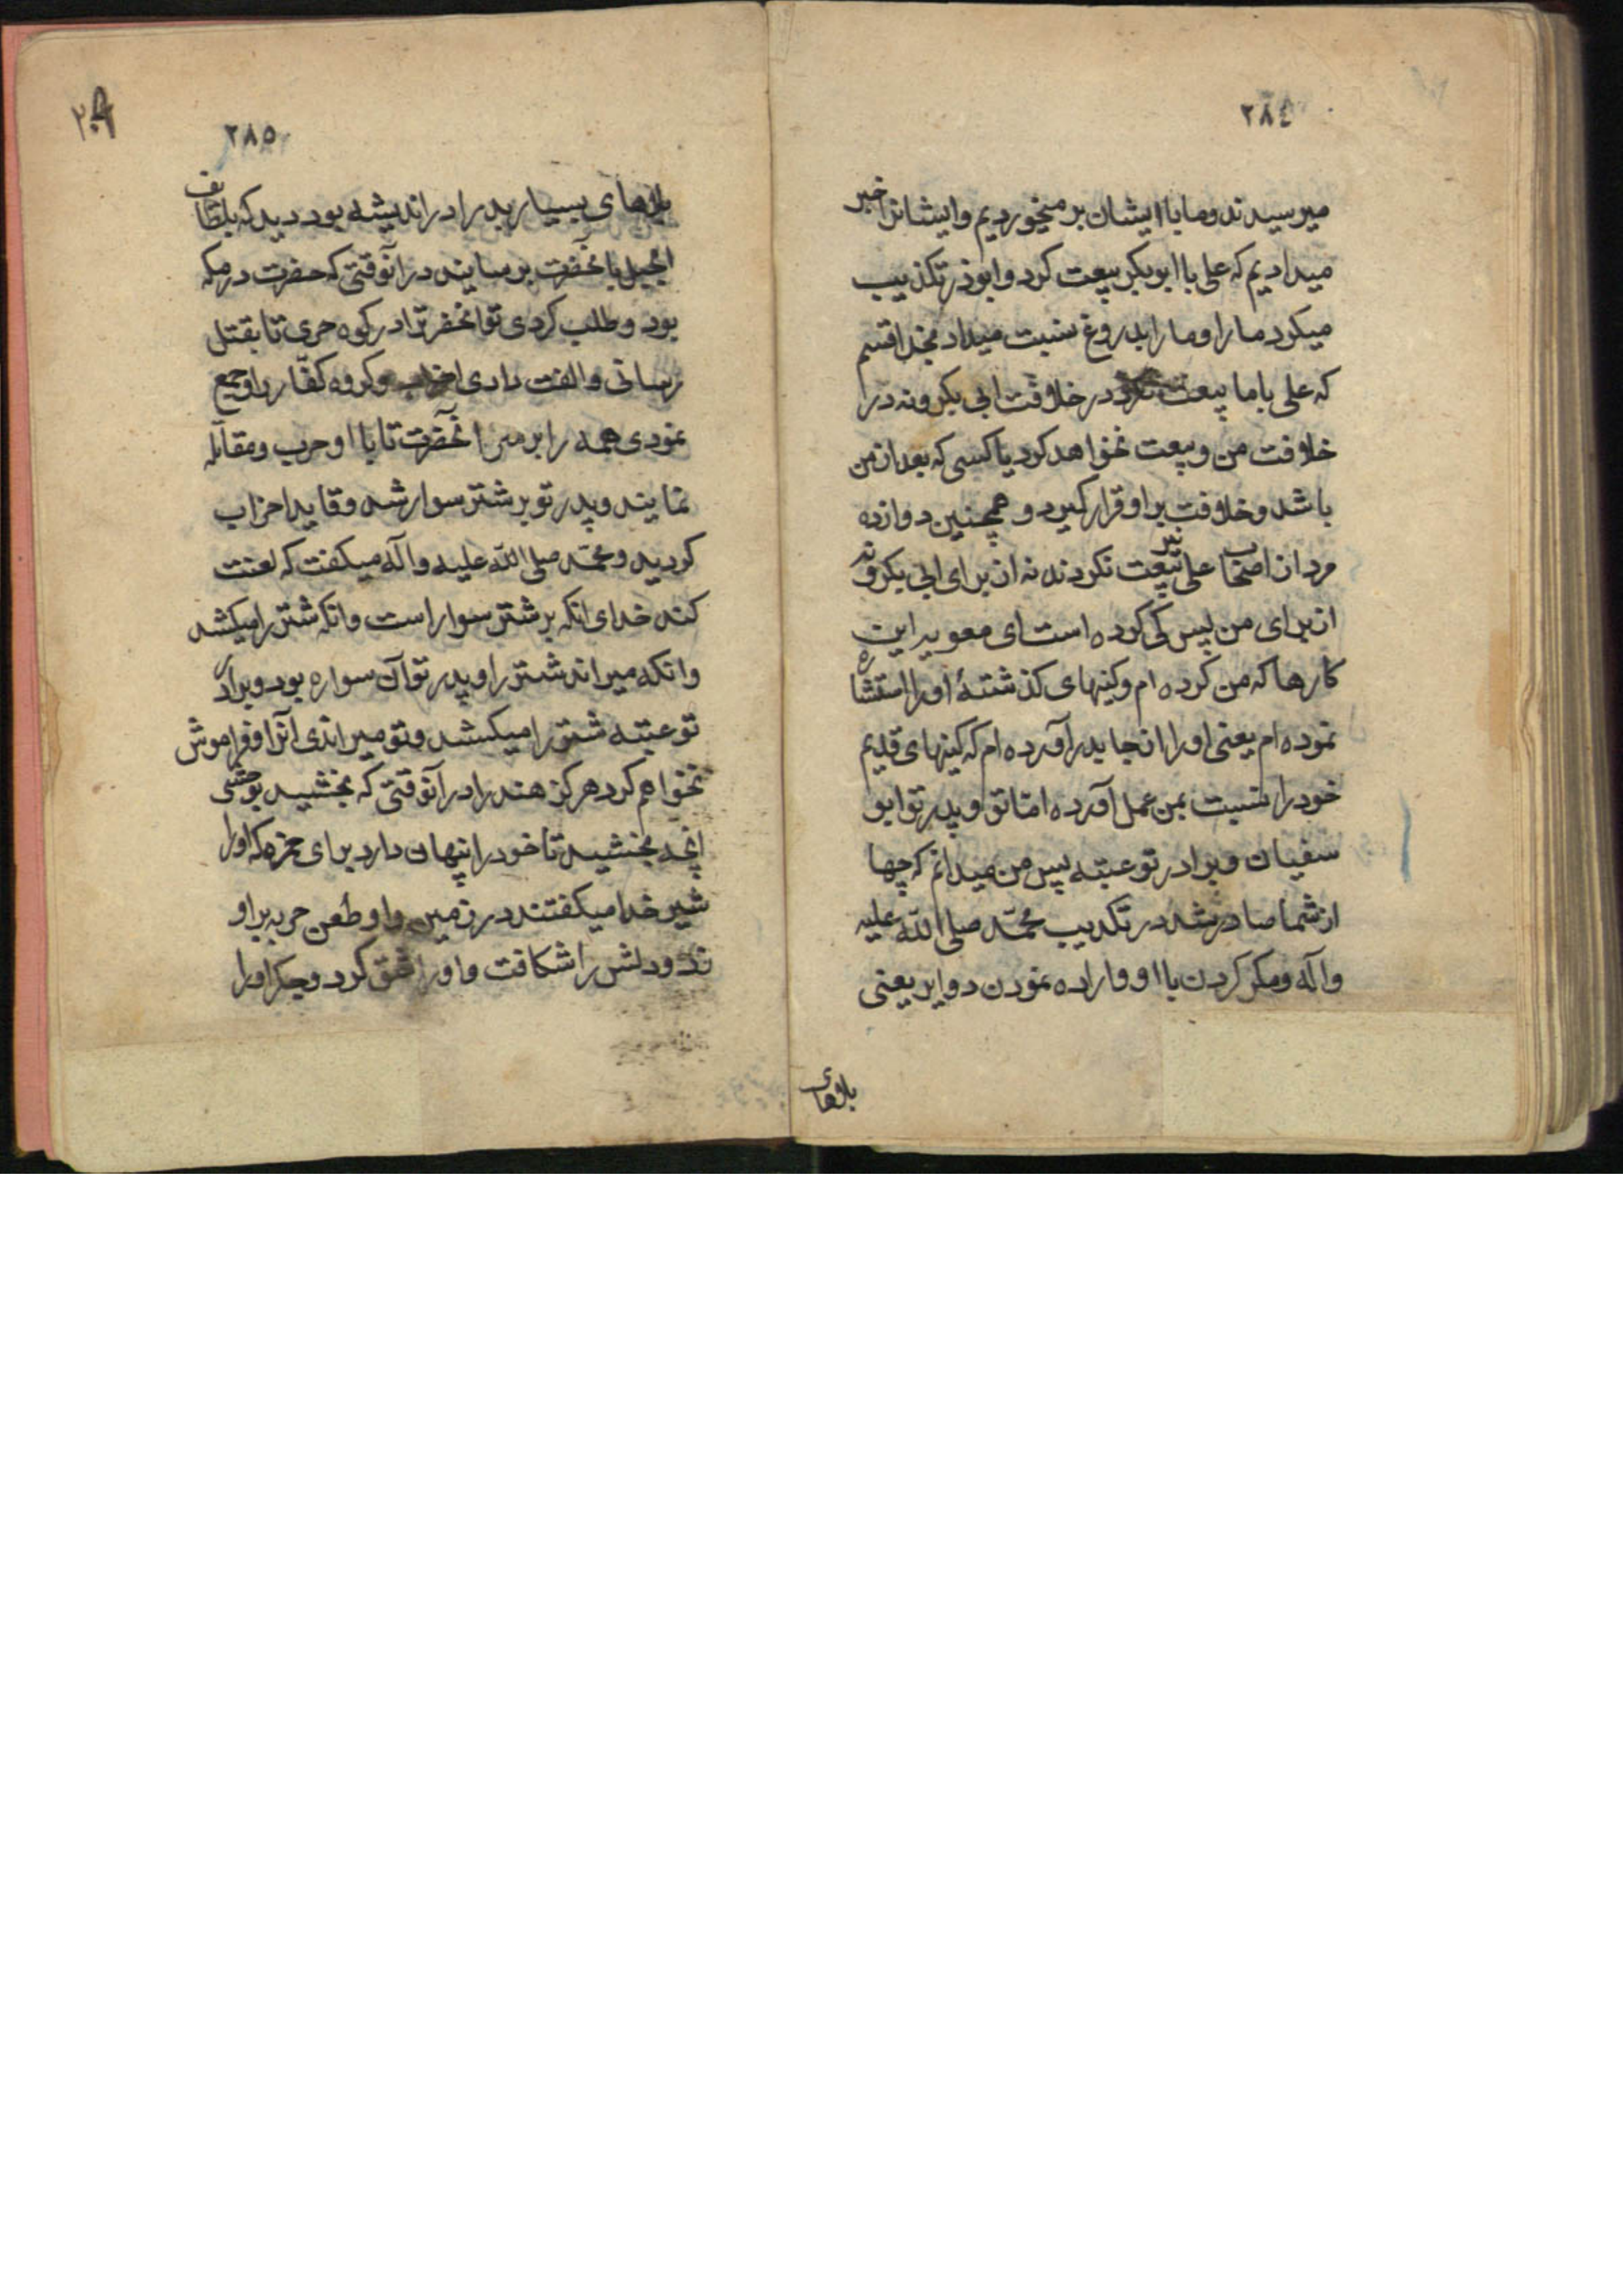 ۲۸٤
میرسیدند و ما با ایشان بر میخوردیم و ایشانرا خبر
میدادیم که علی با ابو بکر بیعت کرد و ابوذر تکذیب
میکرد ما را و ما را بدروغ نسبت میداد بخدا قسم
که علی با ما بیعت نکرد در خلافت ابی بکر و نه در
خلافت من و بیعت نخواهد کرد با کسی که بعد از من
باشد و خلافت بر او قرار گیرد و همچنین دوازده
مرد از اصحاب علی نیز بیعت نکردند نه از برای ابی بکر و نه
از برای من پس کی کرده است ای معویه این
کارها که من کرده ام و کینهای کذشتهٔ او را استشاره
نموده ام یعنی او را از جا بدر آورده ام که کینهای قدیم
خود را نسبت بمن عمل آورده اما تو و پدر تو ابو
سفیان و برادر تو عتبه پس من میدانم که چها
از شما صادر شد در تکذیب محمّد صلی الله علیه
و آله و مکر کردن با او و اراده نمودن دوایر یعنی
بلاهای
۲۸۵
بلاهای بسیار بد را در اندیشه بود دید که بلطایف
الحیل بانحضرت برسانید در آنوقتی که حضرت در مکه
بود و طلب کردی تو انحضرترا در کوه حری تا بقتل
رسانی و الفت دادی احزاب و کروه کفّار را و جمع
نمودی همه را بر سر آنحضرت تا با او حرب و مقاتله
نمایند و پدر تو بر شتر سوار شد و قاید احزاب
کردید و محمّد صلی الله علیه و آله میکفت که لعنت
کند خدای انکه بر شتر سوار است و انکه شتر را میکشد
و انکه میراند شتر را و پدر تو آن سواره بود و برادر
تو عتبه شتر را میکشد و تو میراندی آنرا و فراموش
نخواهم کرد هرکز هند را در آنوقتی که بخشید بوحشی
انچه بخشید تا خود را پنهان دارد برای حمزه که او را
شیر خدا میکفتند در زمین و او طعن حربه بر او
زد و دلش را شکافت و او را شق کرد و جکر او را